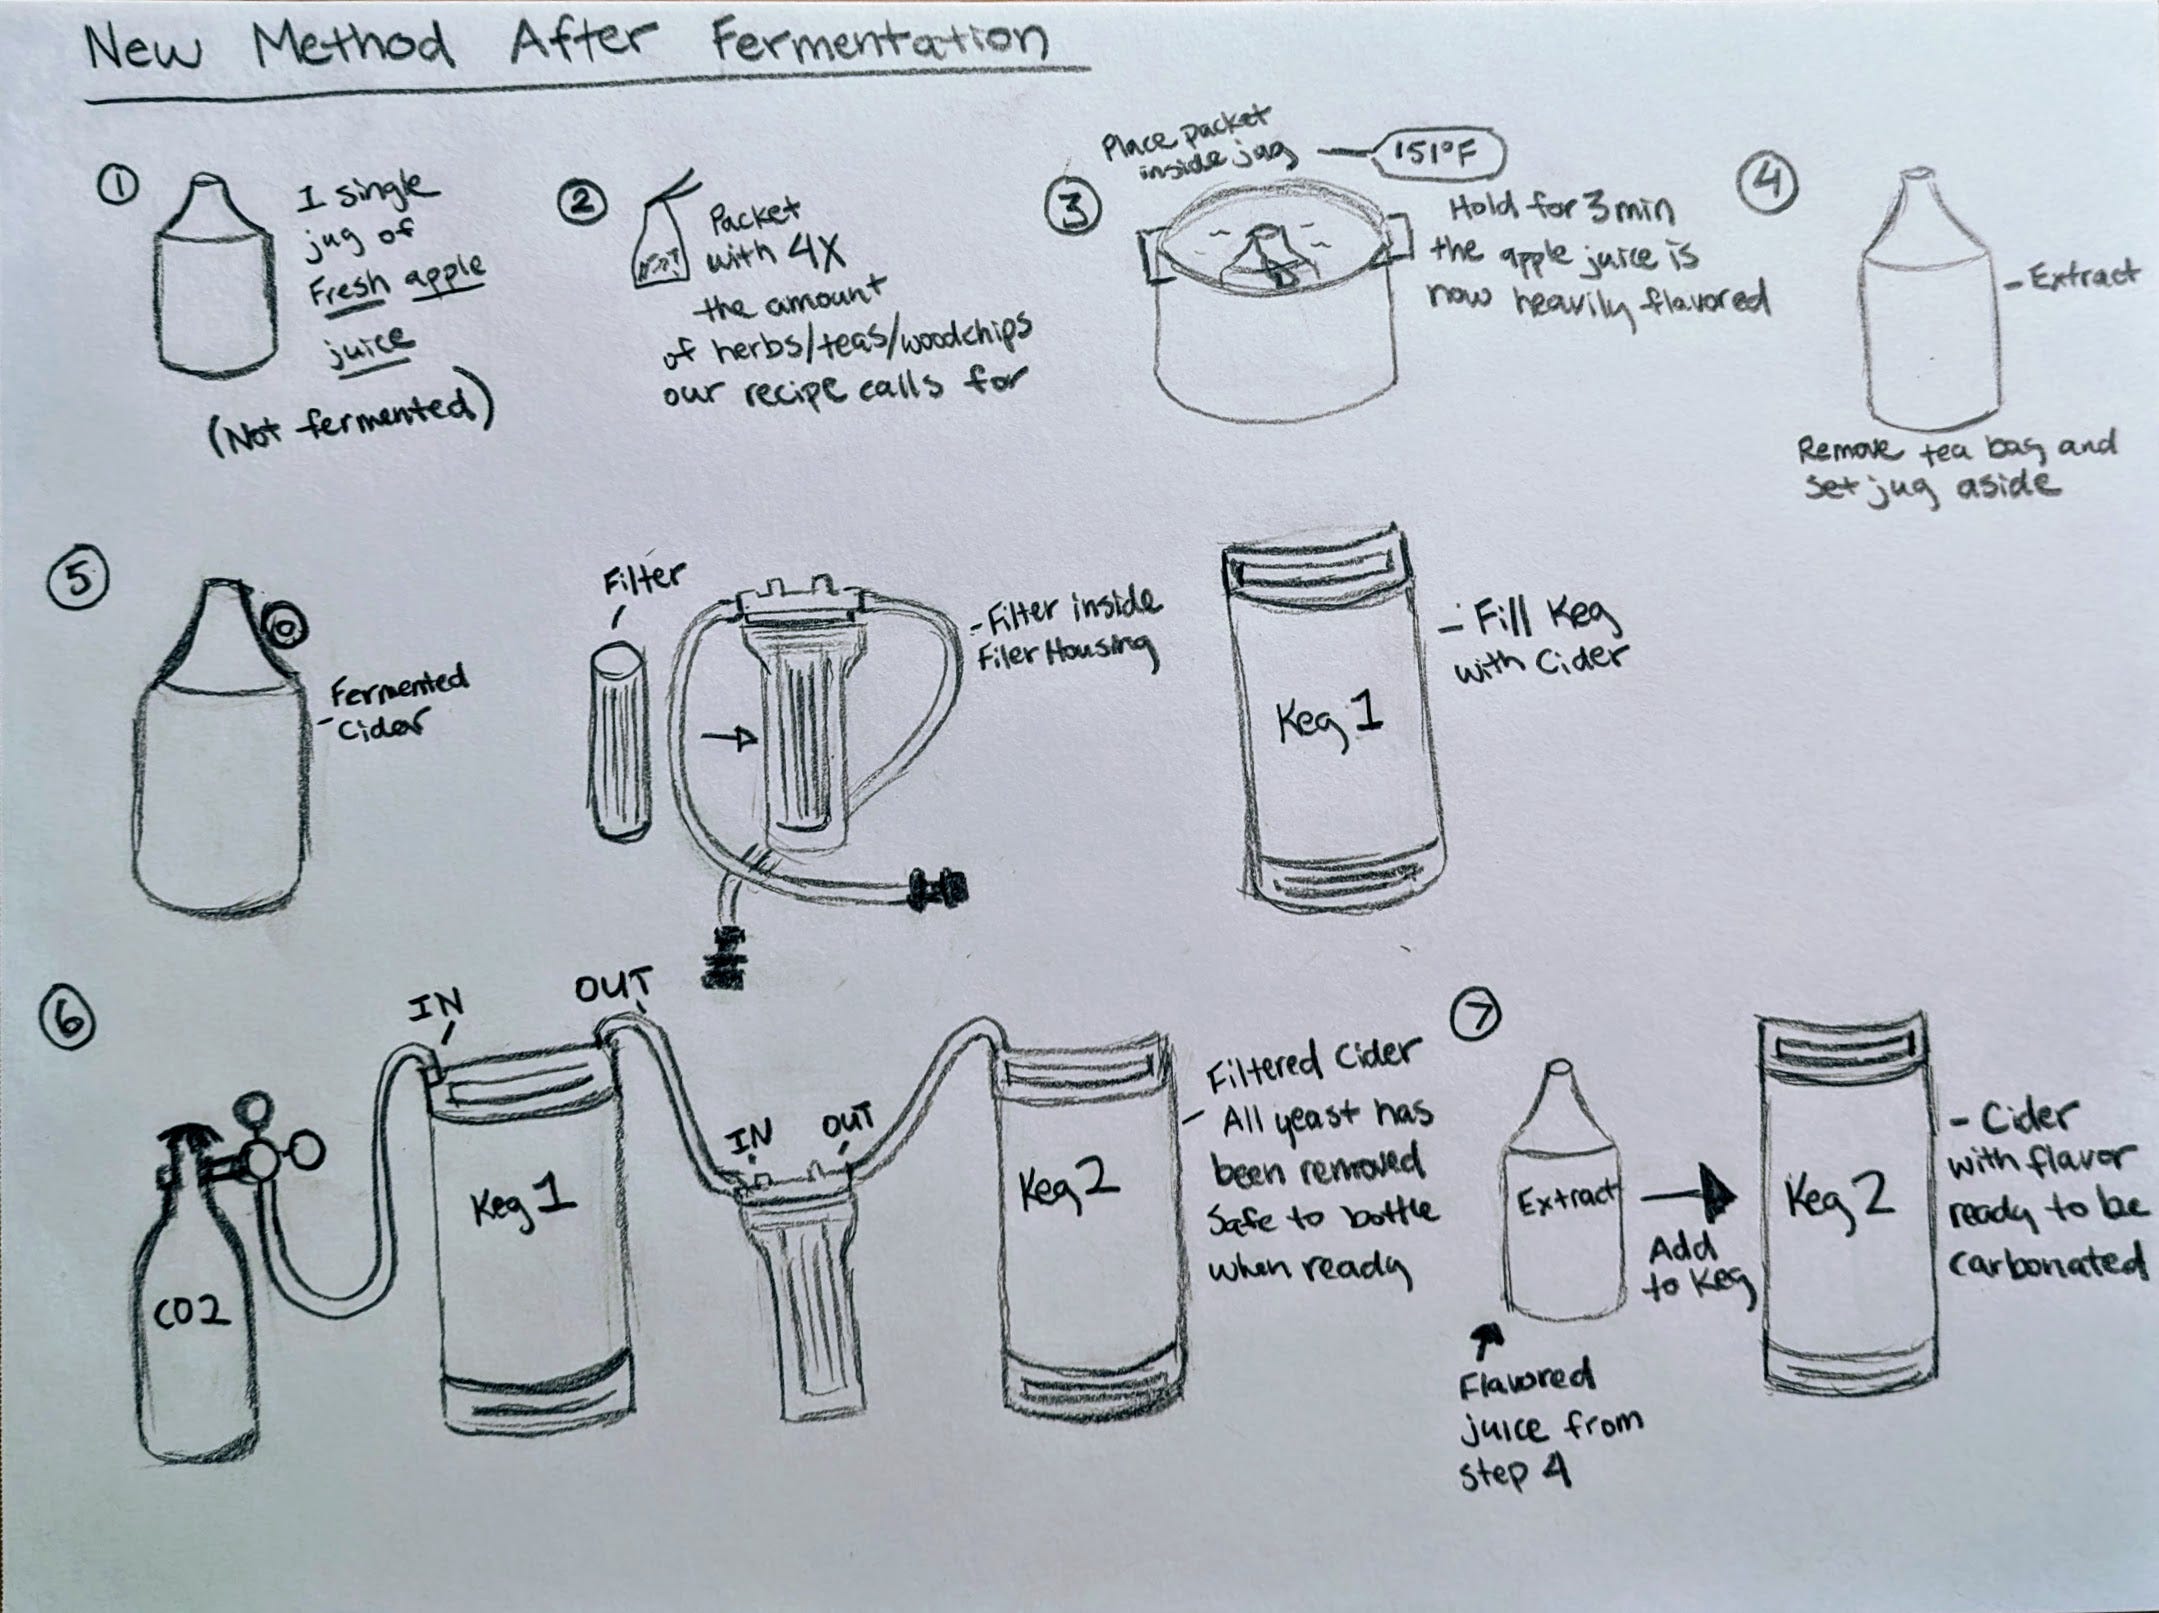 New Method After Fermentation
①
1 single
jug of
Fresh apple
juice
(Not fermented)
②
Packet
with 4X
the amount
of herbs/teas/woodchips
our recipe calls for
③
Place packet
inside jug
151°F
Hold for 3 min
the apple juice is
now heavily flavored
④
-Extract
Remove tea bag and
set jug aside
⑤
Fermented
-Cider
Filter
-Filter inside
Filer Housing
Keg 1
-Fill Keg
with Cider
⑥
IN
OUT
CO2
Keg 1
IN
OUT
Keg 2
Filtered Cider
- All yeast has
been removed
Safe to bottle
when ready
⑦
Extract
Add
to Keg
Flavored
juice from
step 4
Keg 2
- Cider
with flavor
ready to be
carbonated